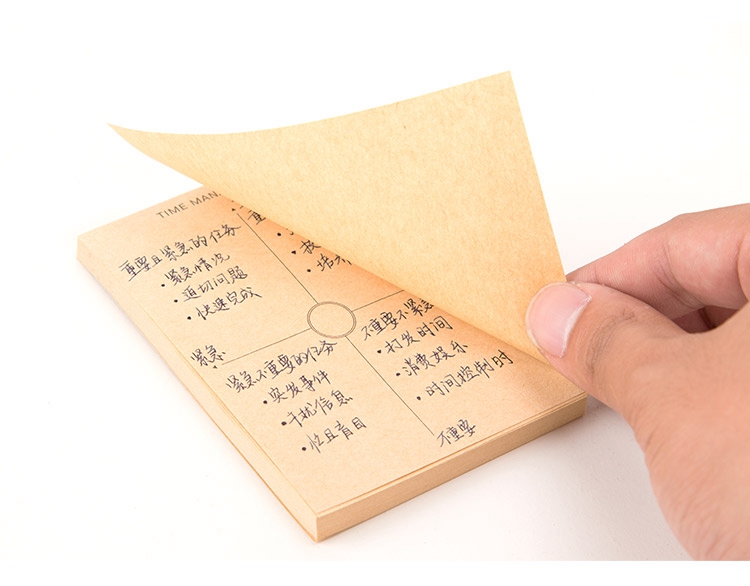 TIME MAN
重要且紧急的任务
• 紧急情况
• 迫切问题
• 快速完成
重
• 按
• 培
紧急
紧急不重要的任务
• 突发事件
• 干扰信息
• 忙且盲目
不重要不紧急
• 打发时间
• 消费娱乐
• 时间控制时
不重要